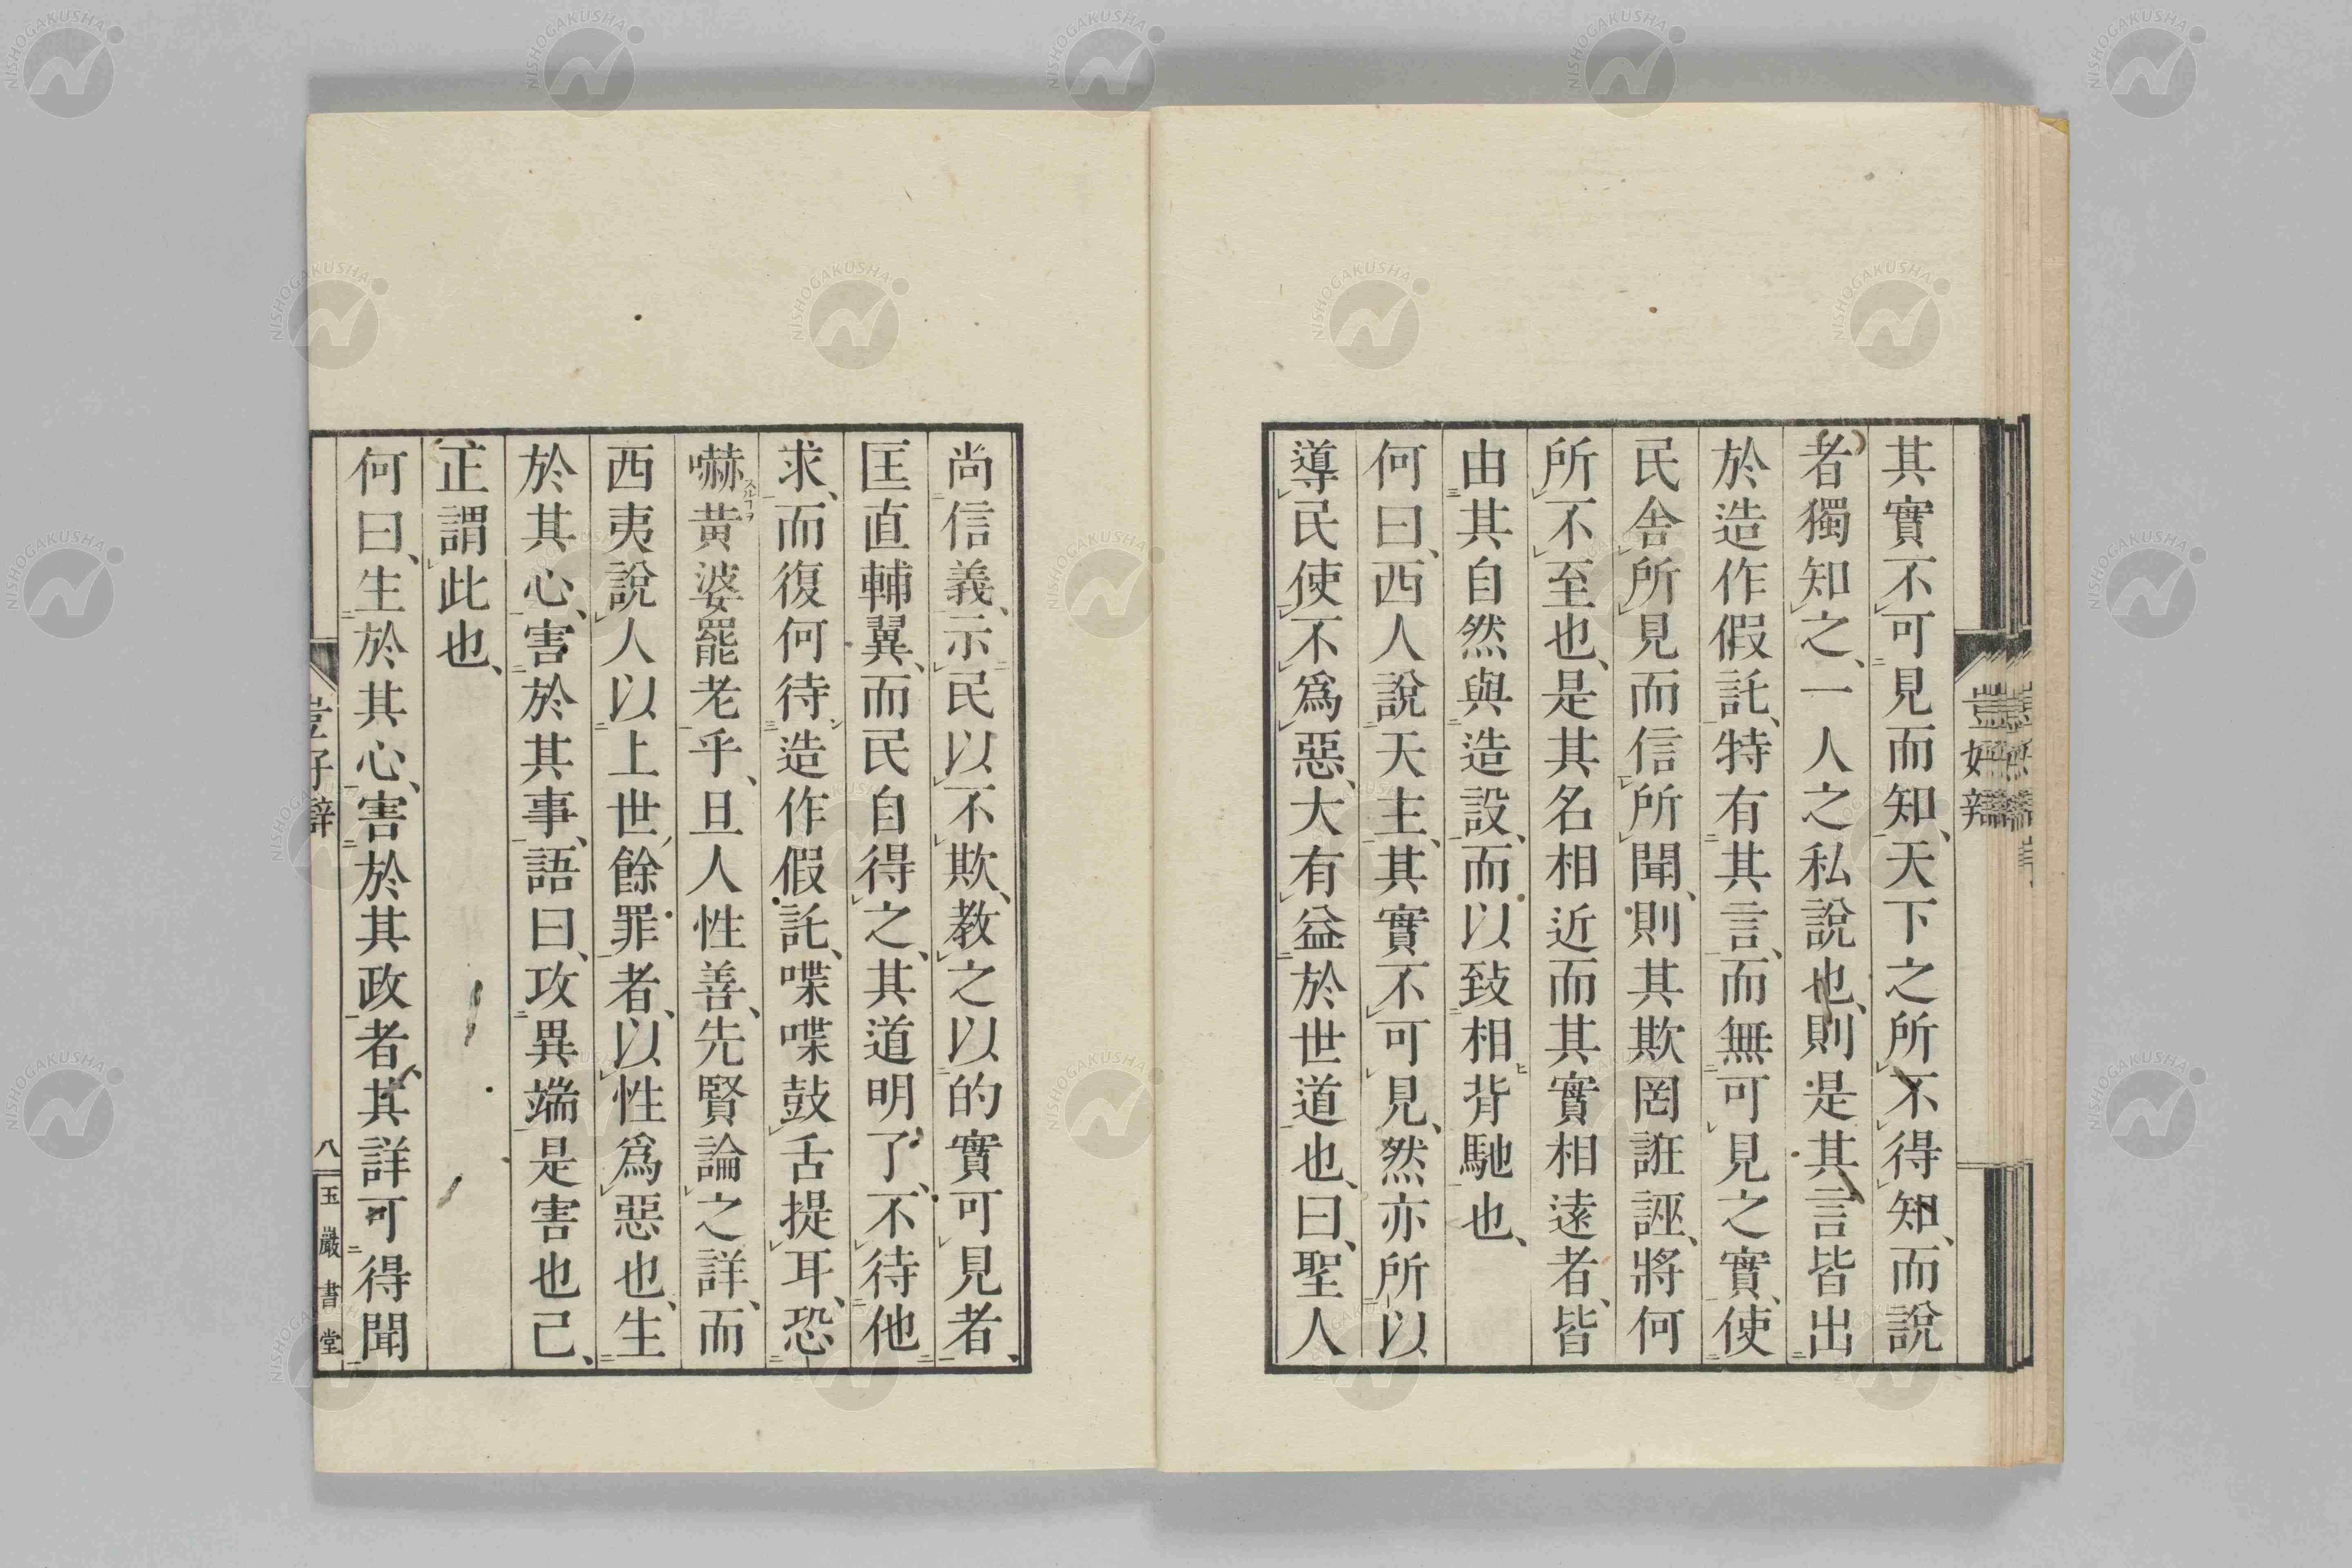 其實不可見而知、天下之所不得知、而說
者獨知之、一人之私說也、則是其言皆出
於造作假託、特有其言、而無可見之實、使
民舍所見而信所聞、則其欺罔誑誣、將何
所不至也、是其名相近而其實相遠者、皆
由其自然與造設、而以致相背馳也、
何曰、西人說天主、其實不可見、然亦所以
導民使不為惡、大有益於世道也、曰、聖人
尚信義、示民以不欺、教之以的實可見者、
匡直輔翼、而民自得之、其道明了、不待他
求、而復何待造作假託、喋喋鼓舌提耳、恐
嚇黃婆罷老乎、且人性善、先賢論之詳、而
西夷說人以上世餘罪者、以性為惡也、生
於其心、害於其事、語曰、攻異端是害也己、
正謂此也、
何曰、生於其心、害於其政者、其詳可得聞
八
玉巖書堂
NISHOGAKUSHA